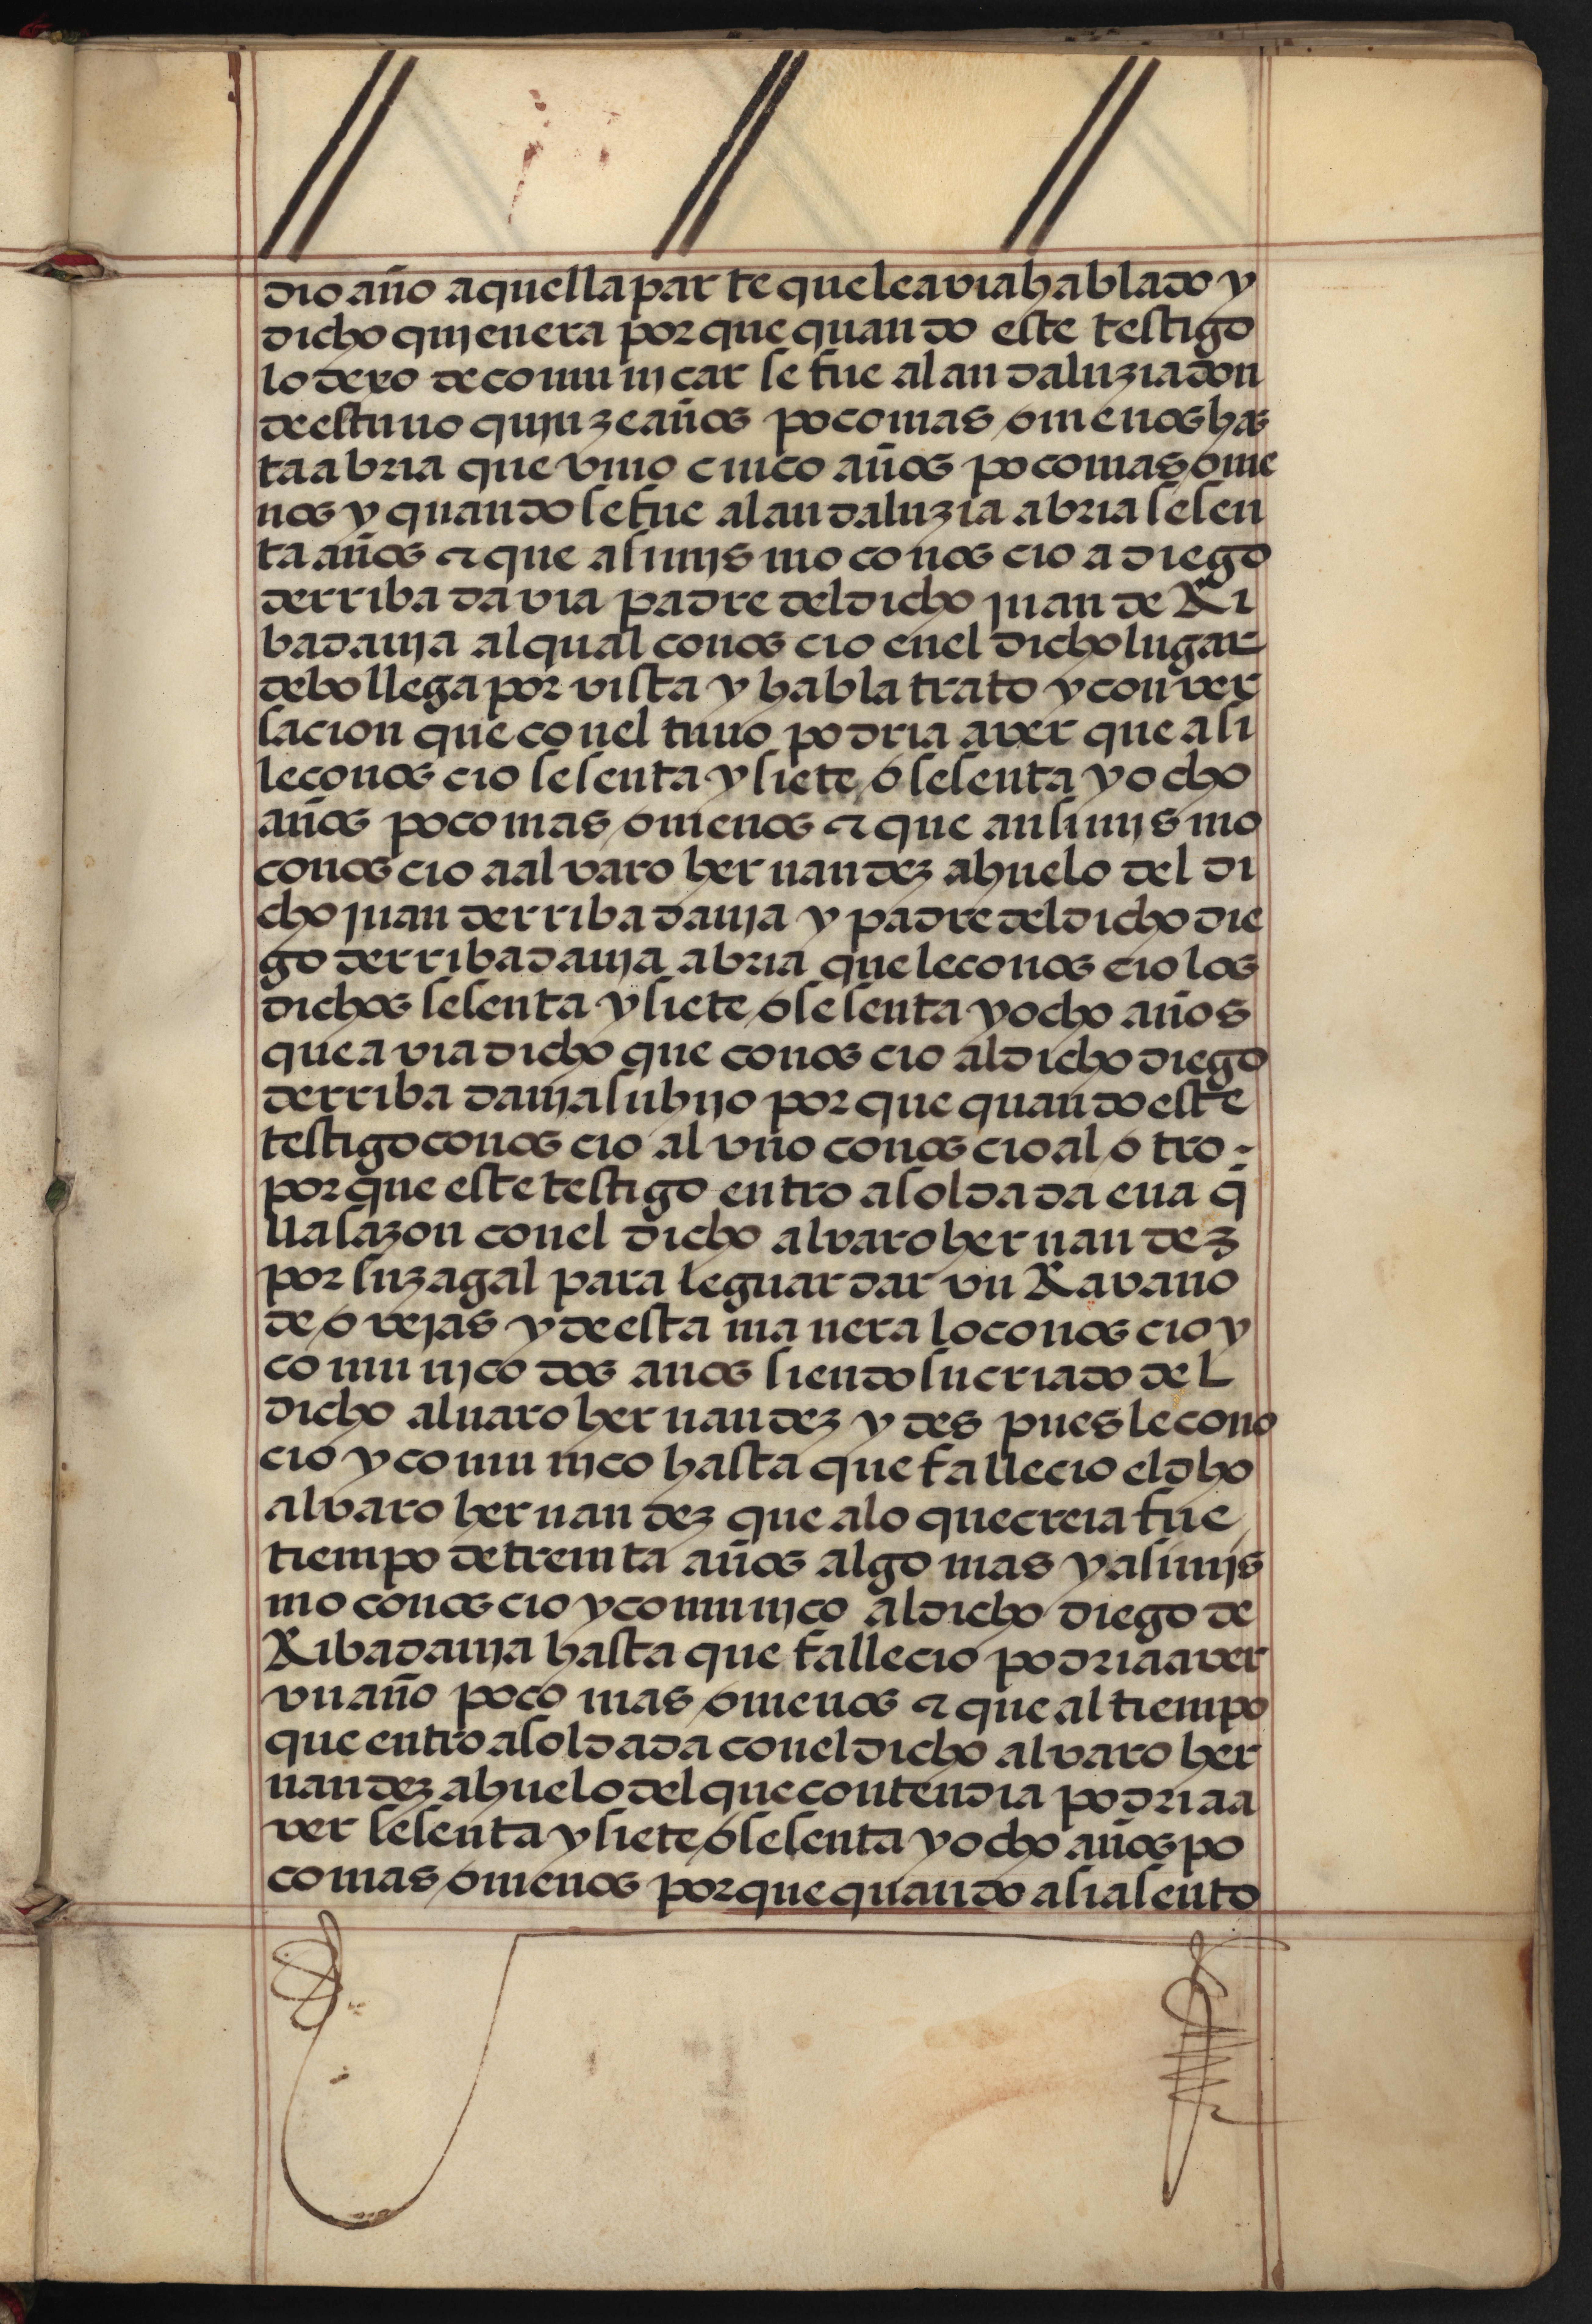 dio año aquella parte que le avia hablado y
dicho quien era por que quando este testigo
lo dexo de comunicar se fue al andaluzia don
de estuuo quinze años poco mas o menos has
ta abria que vino cinco años poco mas o me
nos y quando se fue al andaluzia abria sesen
ta años τ que asimismo conoscio a diego
de rribadavia padre del dicho juan de Ri
badauja al qual conoscio en el dicho lugar
de bollega por vista y habla trato y conver
sacion que con el tuuo podria aver que asi
le conoscio sesenta y siete o sesenta y ocho
años poco mas o menos τ que ansimismo
conoscio a alvaro hernandez ahuelo del di
cho juan de rribadauja y padre del dicho die
go de rribadauja abria que le conoscio los
dichos sesenta y siete o sesenta y ocho años
que avia dicho que conoscio al dicho diego
de rribadauja su hijo por que quando este
testigo conoscio al vno conoscio al otro -
por que este testigo entro a soldada en a q̄
lla sazon con el dicho alvaro hernandez
por su zagal para le guardar vn Ravano
de ovejas y de esta manera lo conoscio y
comunico dos anos siendo su criado del
dicho aluaro hernandez y despues le cono
cio y comunico hasta que fallecio el dho
alvaro hernandez que a lo que creia fue
tiempo de treinta años algo mas y asimis
mo conoscio y comunico al dicho diego de
Ribadauja hasta que fallecio podria aver
vn año poco mas o menos τ que al tiempo
que entro a soldada con el dicho alvaro her
nandez ahuelo del que contendia podria a
ver sesenta y siete o sesenta y ocho años po
co mas o menos por que quando asi asento